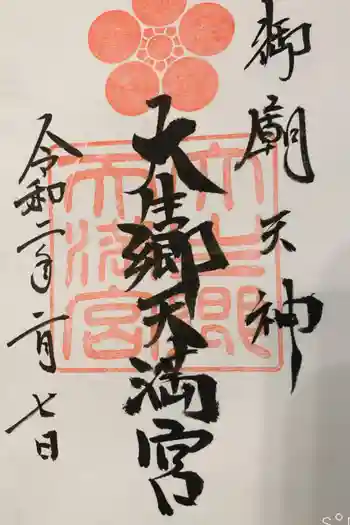 御廟天神
大生郷天満宮
令和二年二月七日
大生郷
天満宮